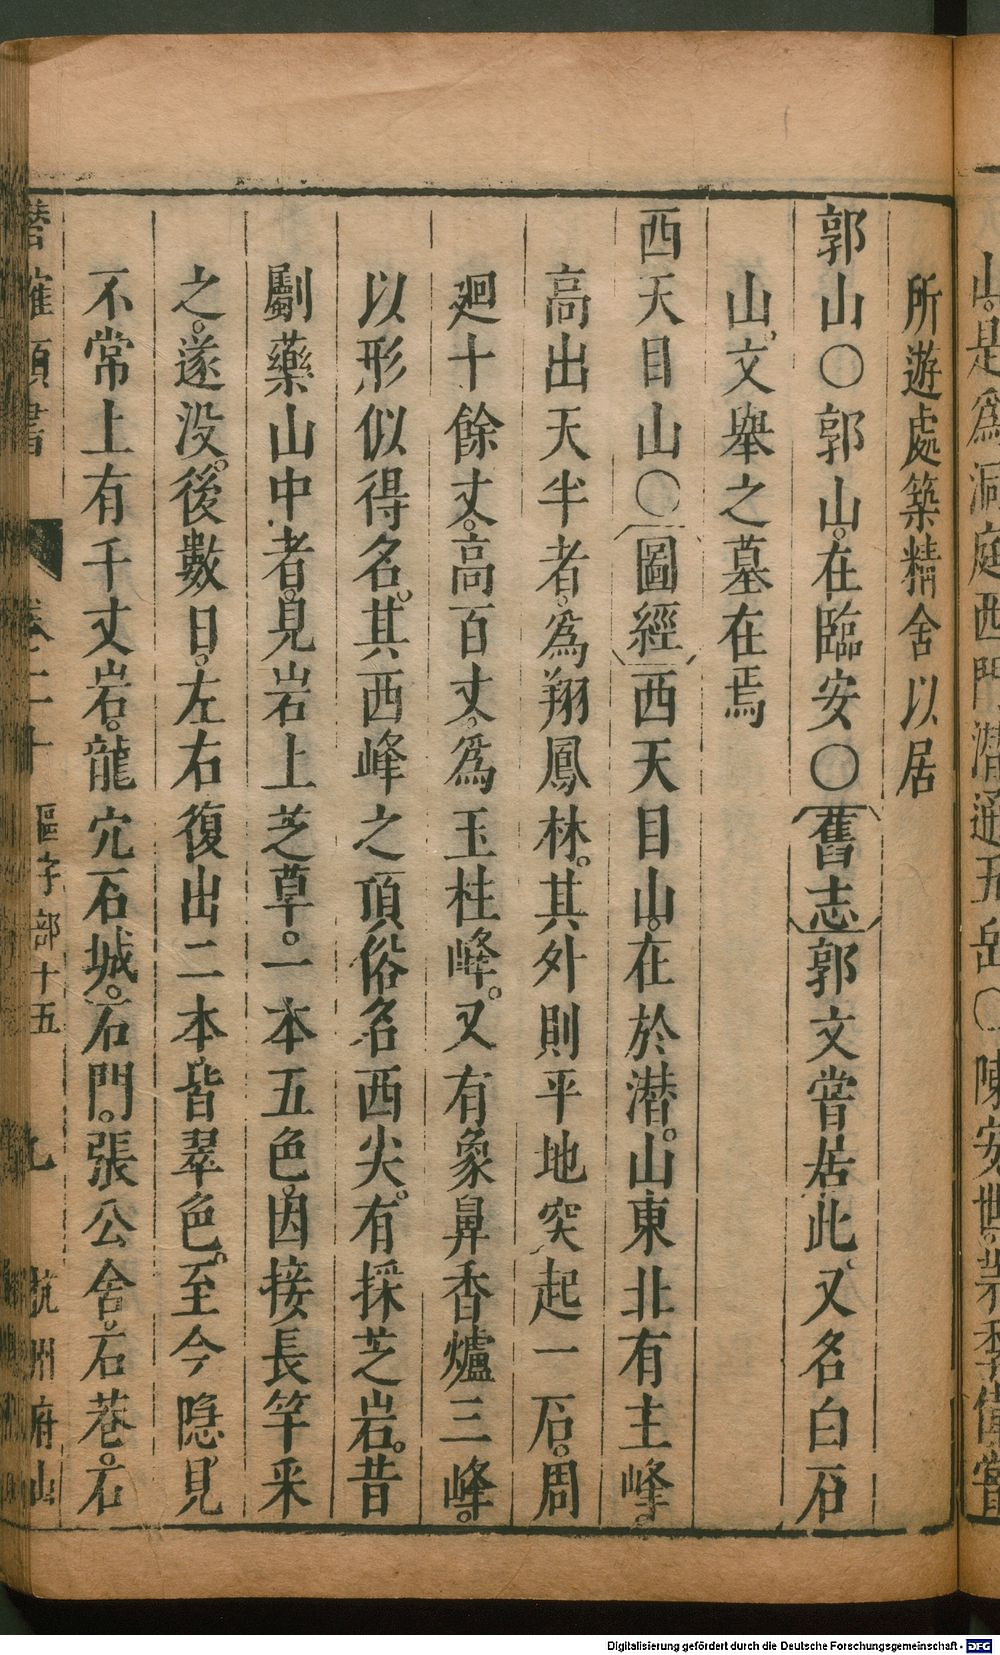 山。是爲洞庭西門潛通五岳〇陳安世
所遊處築精舍以居
郭山〇郭山。在臨安〇舊志郭文嘗居此。又名白石
山。文舉之墓在焉
西天目山〇圖經西天目山。在於潛。山東北有主峰。
高出天半者。爲翔鳳林。其外則平地突起一石。周
廻十餘丈。高百丈。爲玉柱峰。又有象鼻香爐三峰。
以形似得名。其西峰之頂俗名西尖。有採芝岩。昔
劚藥山中者。見岩上芝草。一本五色。因接長竿釆
之。遂没。後數日。左右復出二本皆翠色。至今隠見
不常上有千丈岩。龍穴石城。石門。張公舍。石巷。石
潛確類書 卷二十 區字部十五 九 杭州府山
Digitalisierung gefördert durch die Deutsche Forschungsgemeinschaft - DFG